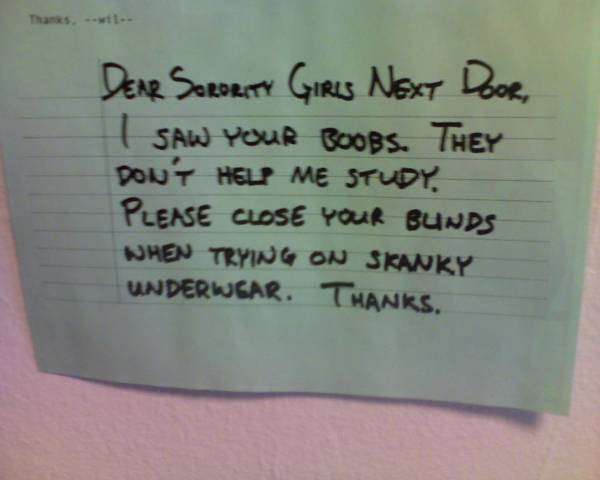 Thanks, --wil--
DEAR SORORITY GIRLS NEXT DOOR,
I SAW YOUR BOOBS. THEY
DON'T HELP ME STUDY.
PLEASE CLOSE YOUR BLINDS
WHEN TRYING ON SKANKY
UNDERWEAR. THANKS.